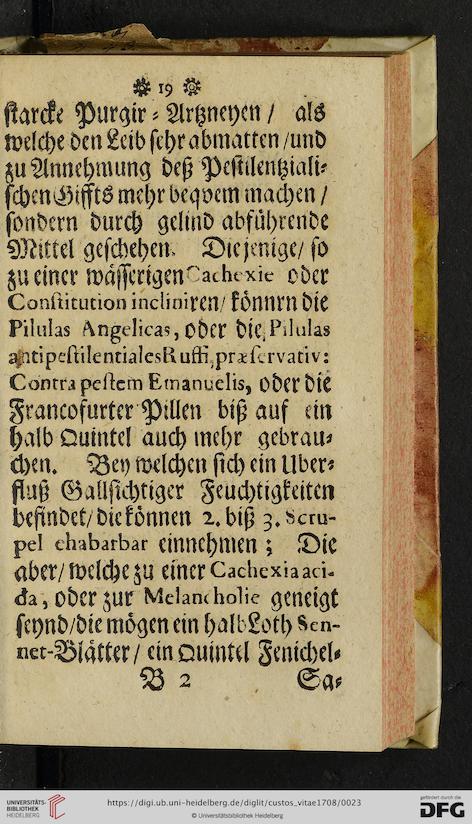 19
starcke Purgir-Artzneyen / als
welche den Leib sehr abmatten / und
zu Annehmung deß Pestilentziali-
schen Giffts mehr beqvem machen /
sondern durch gelind abführende
Mittel geschehen. Diejenige / so
zu einer wässerigen Cachexie oder
Constitution incliniren / könnrn die
Pilulas Angelicas, oder die Pilulas
antipestilentiales Ruffi, præservativ:
Contra pestem Emanuelis, oder die
Francofurter Pillen biß auf ein
halb Quintel auch mehr gebrau-
chen. Bey welchen sich ein Uber-
fluß Gallsichtiger Feuchtigkeiten
befindet / die können 2. biß 3. Scru-
pel ehabarbar einnehmen ; Die
aber / welche zu einer Cachexia aci-
da, oder zur Melancholie geneigt
seynd / die mögen ein halb Loth Sen-
net-Blätter / ein Quintel Fenichel-
B 2 Sa-
UNIVERSITÄTS-
BIBLIOTHEK
HEIDELBERG
https://digi.ub.uni-heidelberg.de/diglit/custos_vitae1708/0023
© Universitätsbibliothek Heidelberg
gefördert durch die
DFG